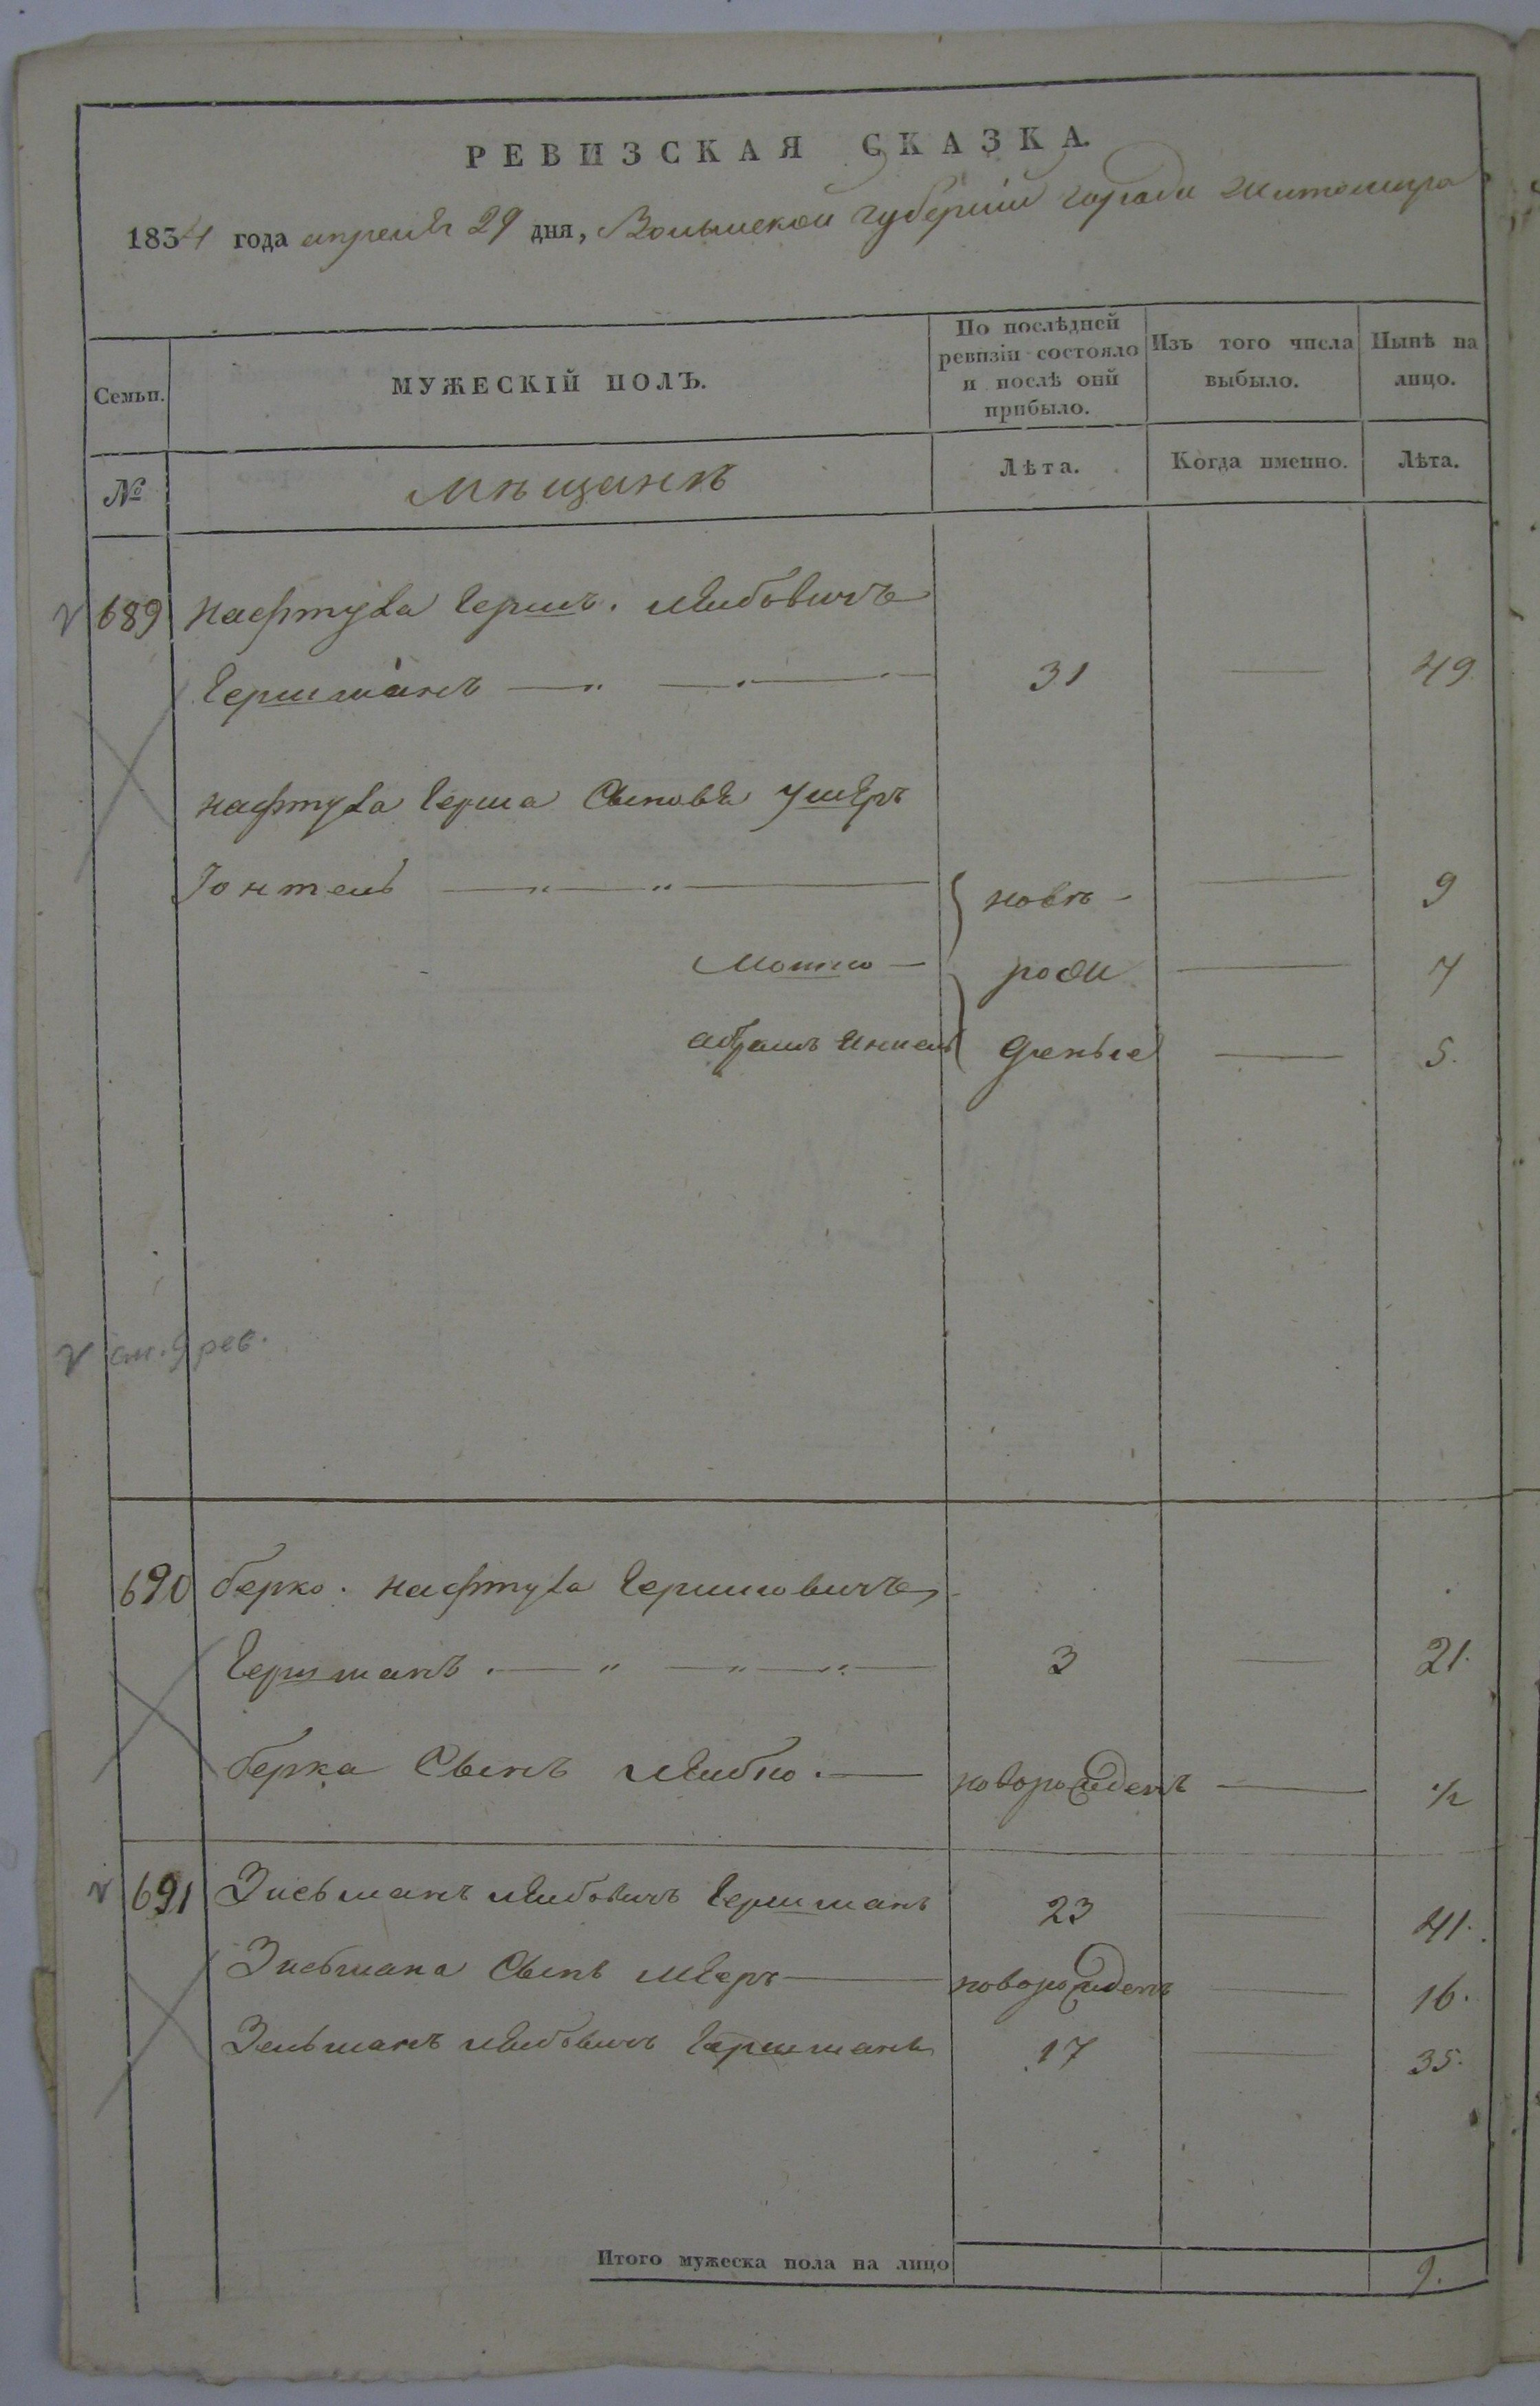 РЕВИЗСКАЯ СКАЗКА.
1834 года апреля 29 дня, Волынской губернии города Житомира
Семьи.
МУЖЕСКІЙ ПОЛЪ.
По послѣдней ревизіи состояло и послѣ оной прибыло.
Изъ того числа выбыло.
Нынѣ на лицо.
№
Мѣщанѣ
Лѣта.
Когда именно.
Лѣта.
689 Нафтула Гершъ. Лейбовичъ
Гершманъ 31 — 49
Нафтула Герша Сыновья Ушеръ
Іонтель { новъ — — 9
Мошко — рож — 7
абрамъ Янкель деные — 5.
см. 9 рев.
690 берко. Нафтула Гершковичъ
Гершманъ. — 3 — 21.
берка Сынъ Лейбко. — новорожденъ — 1/2
691 Зисьманъ Лейбовичъ Гершманъ 23 — 41.
Зисьмана Сынъ Мееръ — новорожденъ — 16.
Зельманъ Лейбовичъ Гершманъ 17 — 35.
Итого мужеска пола на лицо 9.